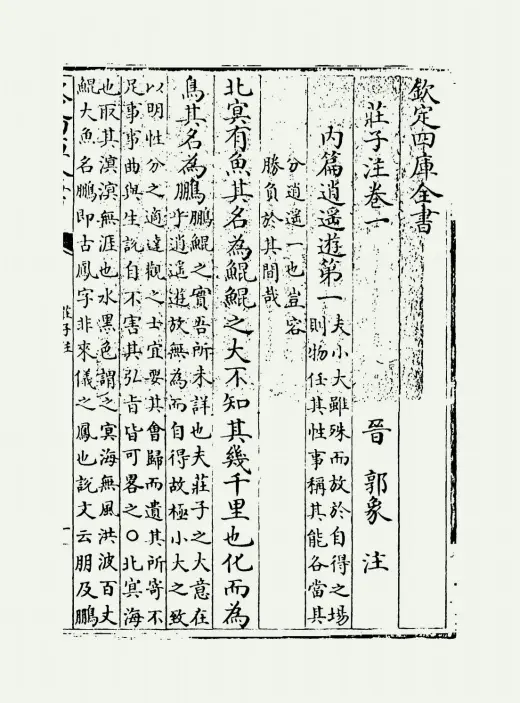 欽定四庫全書
莊子注卷一
晉 郭象 注
內篇逍遙遊第一
夫小大雖殊而放於自得之場
則物任其性事稱其能各當其
分逍遙一也豈容
勝負於其間哉
北冥有魚其名為鯤鯤之大不知其幾千里也化而為
鳥其名為鵬
鵬鯤之實吾所未詳也夫莊子之大意在
乎逍遙遊放無為而自得故極小大之致
以明性分之適達觀之士宜要其會歸而遺其所寄不
足事事曲與生說自不害其弘旨皆可畧之○北冥海
也取其溟漠無涯也水黑色謂之冥海無風洪波百丈
鯤大魚名鵬即古鳳字非來儀之鳳也説文云朋及鵬
莊子注
一